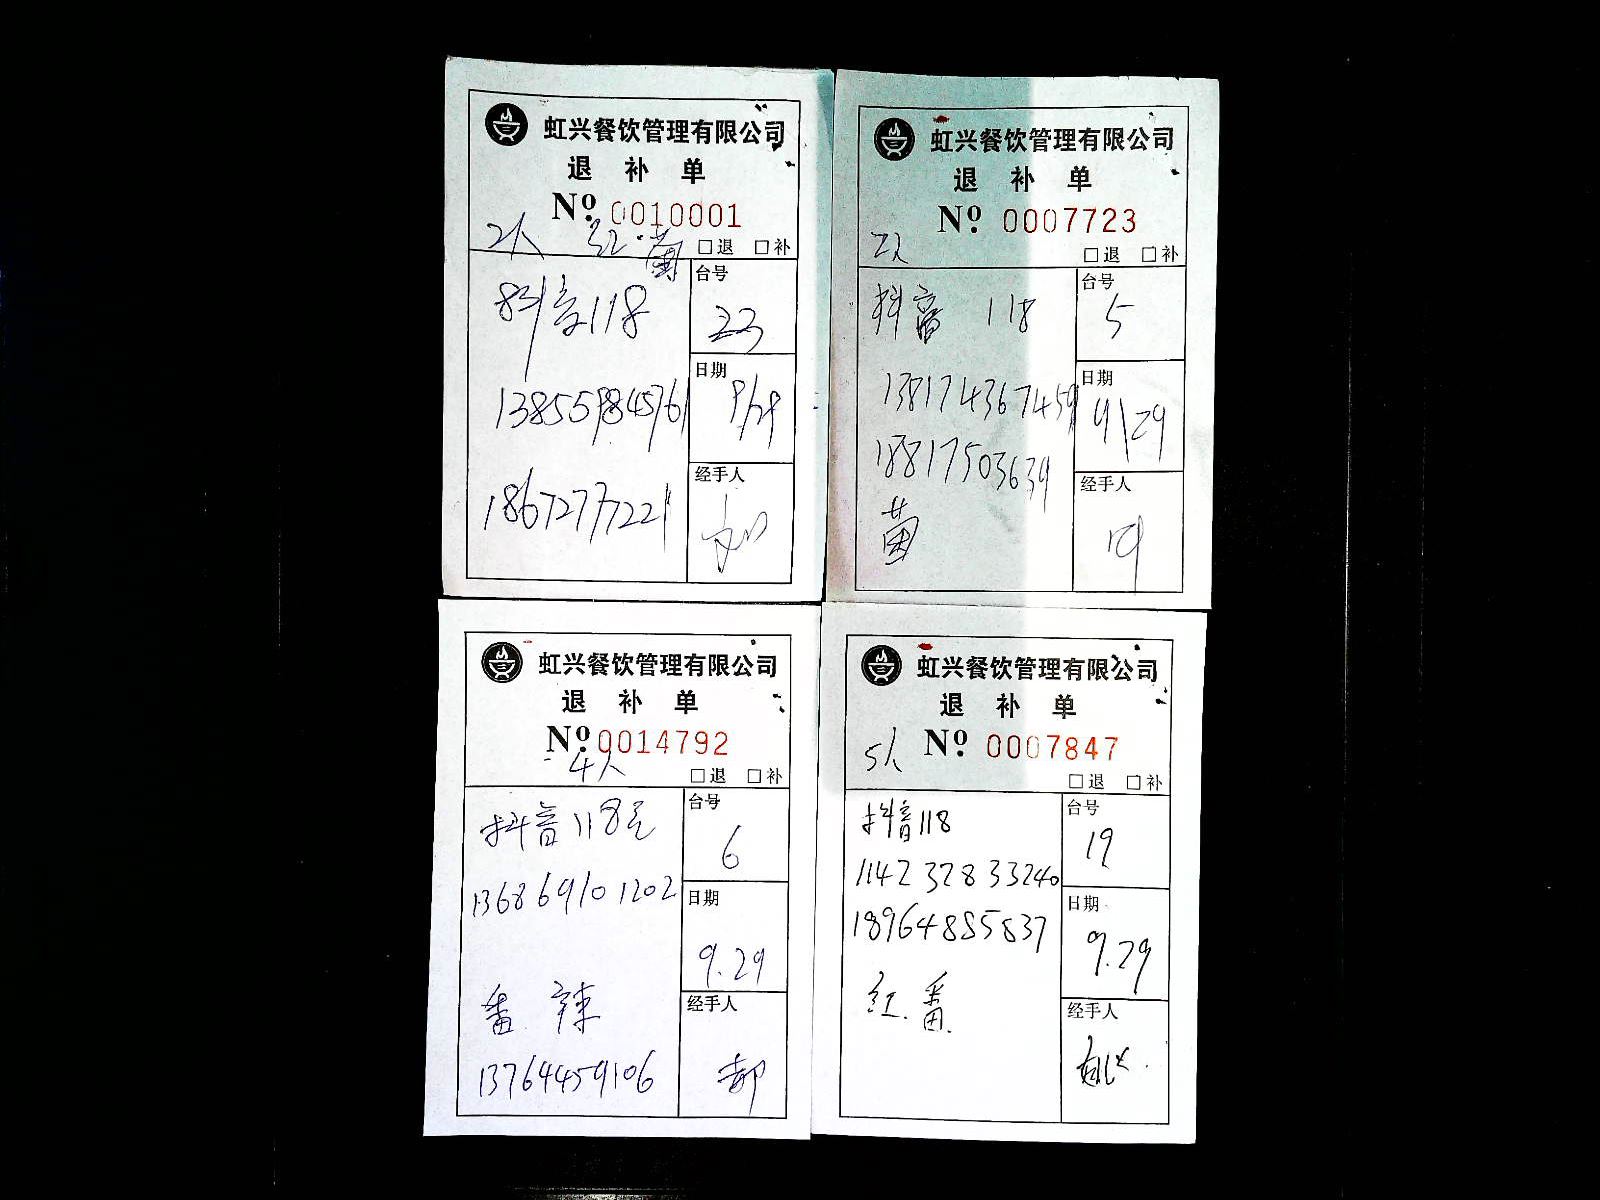 虹兴餐饮管理有限公司
退 补 单
Nº 0010001
2人 红.番
□退 □补
抖音118
台号
23
日期
9/29
138559845761
经手人
18672777221
虹兴餐饮管理有限公司
退 补 单
Nº 0007723
2人
□退 □补
抖音 118
台号
5
日期
9/29
138174367459
18817503639
经手人
番
虹兴餐饮管理有限公司
退 补 单
Nº 0014792
4人
□退 □补
抖音118元
台号
6
136869101202
日期
9.29
番 辣
经手人
郝
13764459106
虹兴餐饮管理有限公司
退 补 单
Nº 0007847
5人
□退 □补
抖音118
台号
19
114232833240
18964885837
日期
9.29
红.番.
经手人